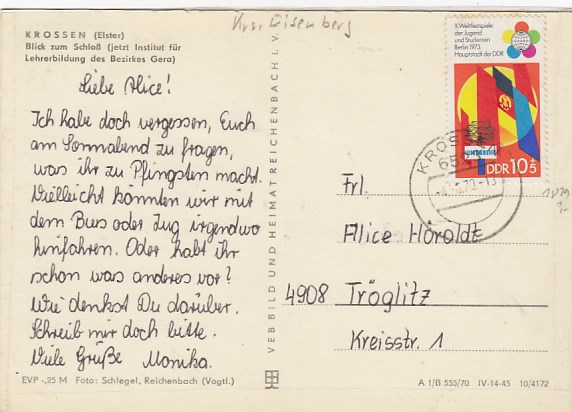 Krs. Eisenberg
KROSSEN (Elster)
Blick zum Schloß (jetzt Institut für
Lehrerbildung des Bezirkes Gera)
Liebe Alice!
Ich habe doch vergessen, Euch
am Sonnabend zu fragen,
was ihr zu Pfingsten macht.
Vielleicht könnten wir mit
dem Bus oder Zug irgendwo
hinfahren. Oder habt ihr
schon was anderes vor?
Wie denkst Du darüber.
Schreib mir doch bitte.
Viele Grüße Monika.
EVP -,25 M Foto: Schlegel, Reichenbach (Vogtl.)
VEB BILD UND HEIMAT REICHENBACH I. V.
X. Weltfestspiele
der Jugend
und Studenten
Berlin 1973
Hauptstadt der DDR
DDR 10+5
KROSSEN
Frl.
Alice Höroldt
4908 Tröglitz
Kreisstr. 1
A 1/B 555/70 IV-14-45 10/4172